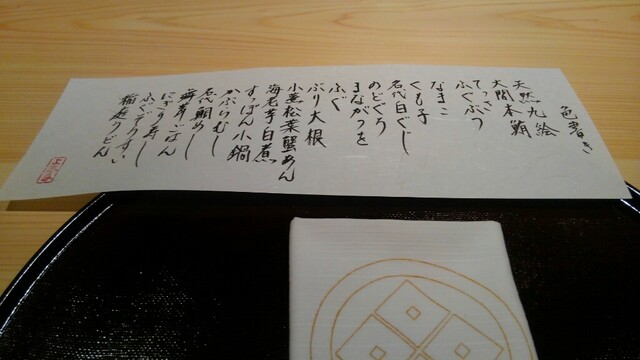 色書き
天然九絵
大間本鮪
てっさ
ふぐぶつ
なまこ
くも子
名代白ぐじ
のどぐろ
まながつを
ふぐ
ぶり大根
小蕪松葉蟹あん
海老芋白煮
すっぽん小鍋
かぶらむし
名代鯛めし
舞茸ごはん
にぎり寿し
ふぐぞうすい
稲庭うどん